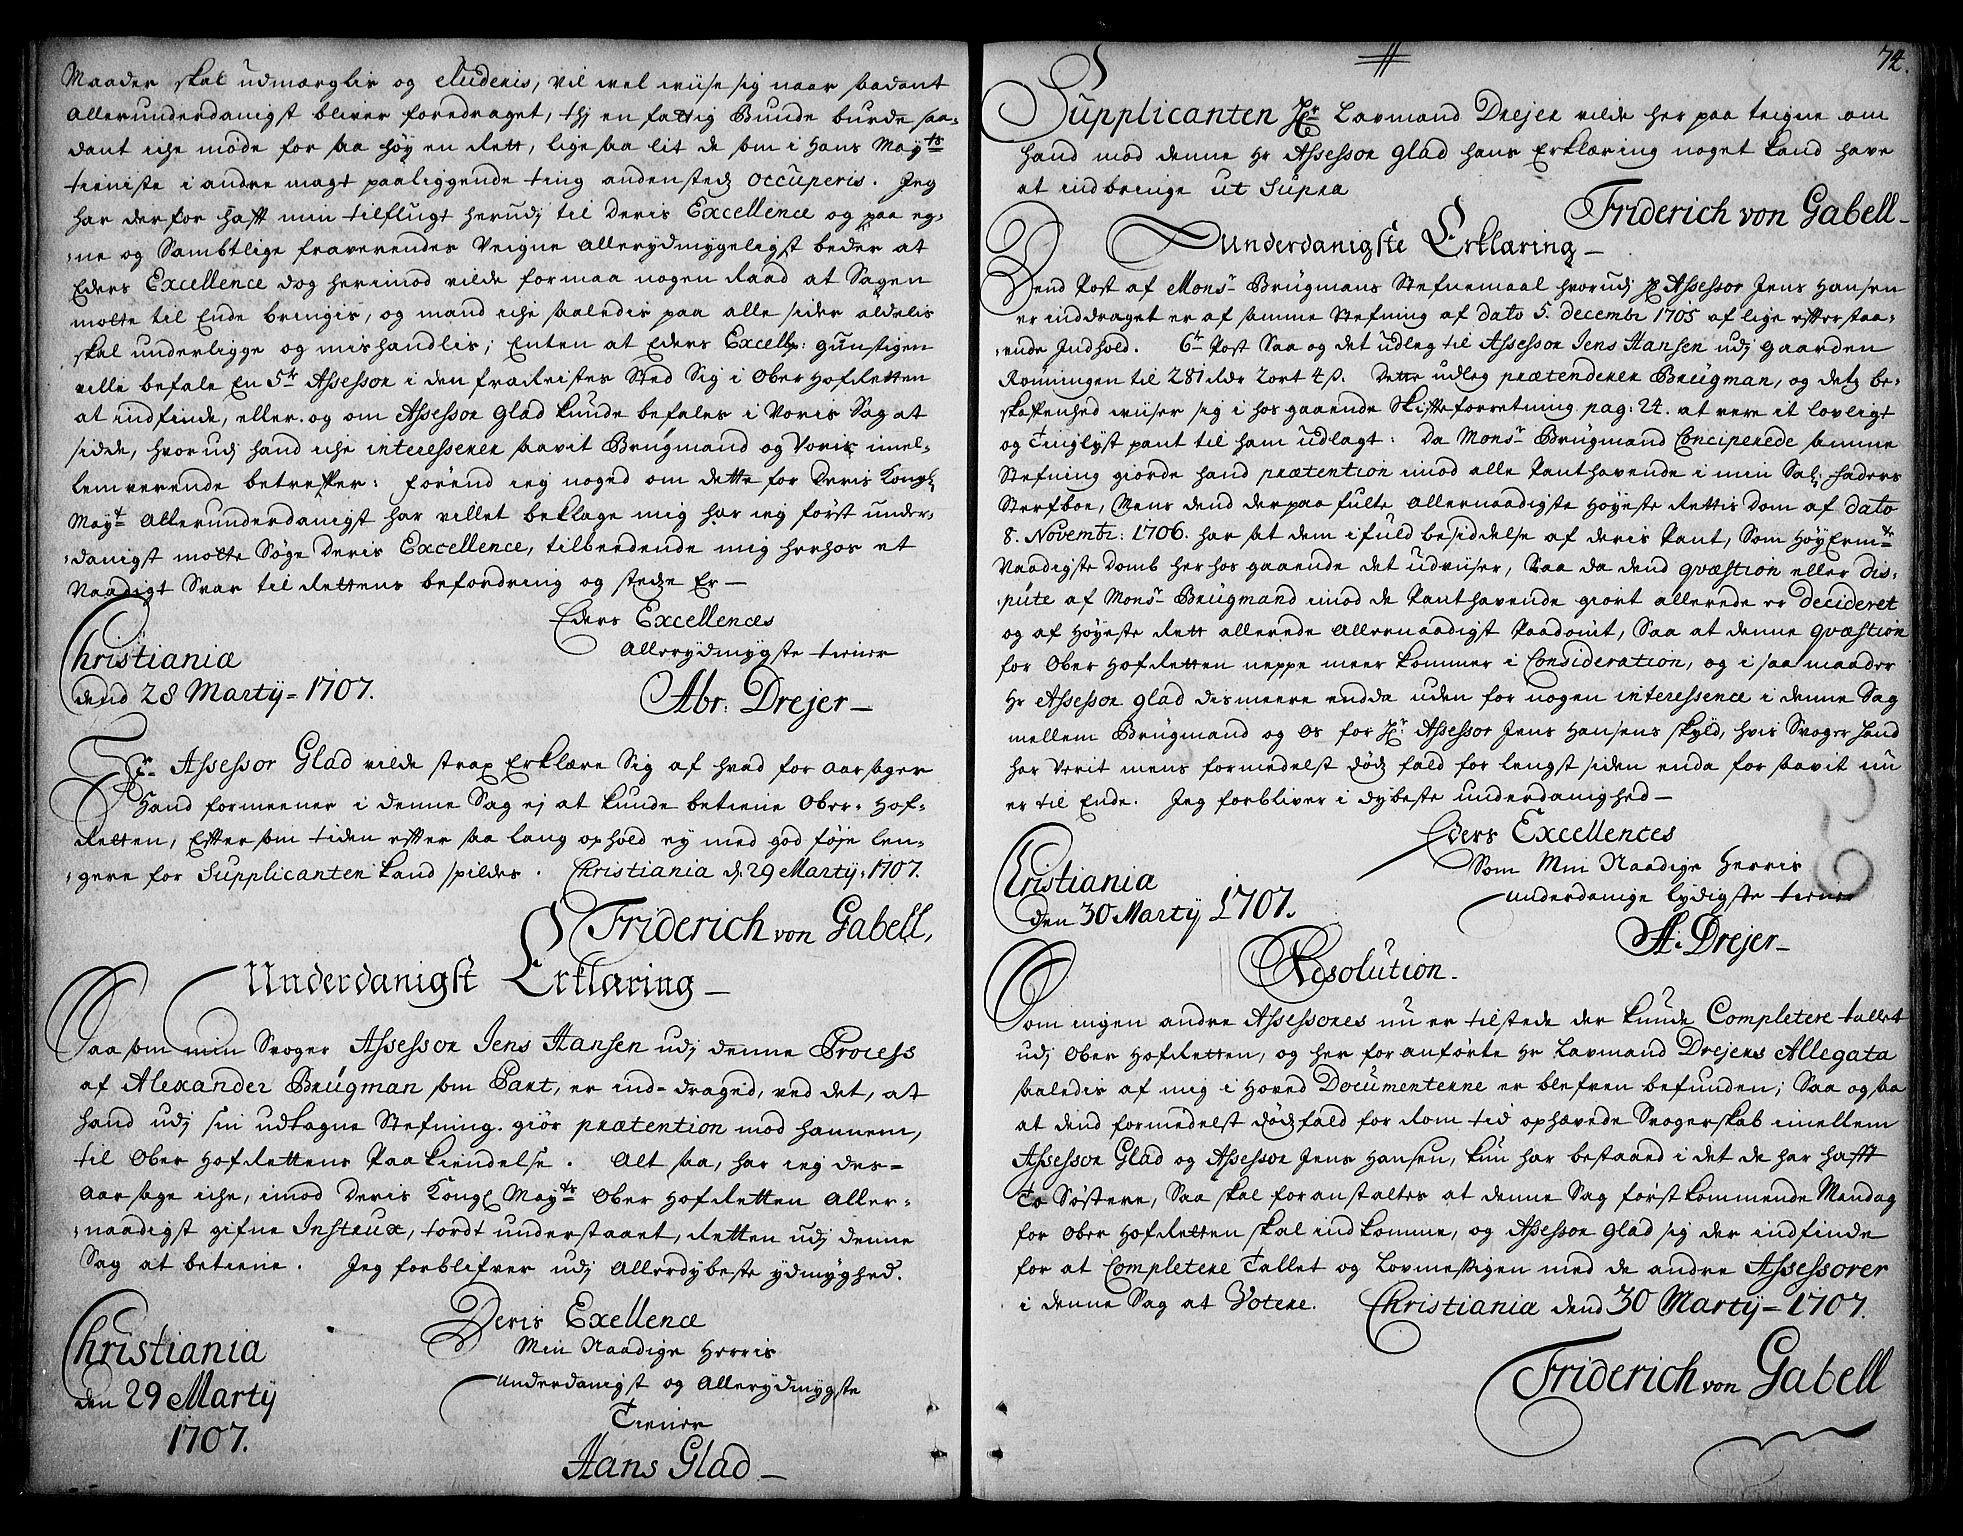 Maader skal udmærglis og eluderis, vil vel viise sig naar saadant
allerunderdanigst bliver foredraget, thj en fattig Bunde burde saa-
dant iche møde for saa høy en Rett, lige saa lit de som i Hans Mayts
tieniste i andre magt paaliggende ting andensteds occuperis. Jeg
har derfor hafft min tilflugt herudj til Deris Excellence og paa eg-
ne og Sambtlige fraverendes Veigne allerydmygeligst beder at
Eders Excellence dog herimod vilde formaa nogen Raad at Sagen
motte til Ende bringis, og mand iche saaledis paa alle sider aldelis
skal underligge og mishandlis; Enten at Eders Excell: gunstigen
ville befale En 5te Assessor i den fraReistes Sted Sig i Ober Hofretten
at indfinde, eller og om Assessor Glad kunde befales i Voris Sag at
sidde, hvorudj hand iche interesserer saavit Brügmand og Voris imel-
lemverende betreffer: førend ieg noged om dette for Deris Kongl
Mayt allerunderdanigst har villet beklage mig har ieg først under-
danigst motte Søge Deris Excellence, tilbeedende mig herhos et
Naadigt Svar til Rettens befordring og stedze Er —
Eders Excellences
allerydmygste tiener
Christiania
dend 28 Martij - 1707.
Abr: Drejer —
Hr Assessor Glad vilde strax Erklære Sig af hvad for aarsager
Hand formeener i denne Sag ej at kunde betiene Ober- Hof-
Retten, Efter som tiden efter saa lang ophold ey med god føje len-
gere for Supplicanten kand spildes. Christiania d: 29 Martij 1707.
Friderich von Gabell,
Underdanigst Erklaring —
Saasom min Svoger Assessor Jens Hansen udj denne Process
af Alexander Brügman som Part, er ind-draged, ved det, at
hand udj sin udtagne Stefning giør prætention mod hannem,
til Ober Hofrettens Paakiendelse. Alt saa, har ieg des-
aarsage iche, imod Deris Kongl Mayts Ober Hofretten aller-
naadigst gifne Instrux, tordt understaaet, Retten udj denne
Sag at betiene. Jeg forblifver udj allerdybeste ydmyghed.
Deris Exellence
Min Naadige Herris
Underdanigst og allerydmygste
Tiener
Christiania
den 29 Martij
1707.
Hans Glad —
74.
Supplicanten Hr Lavmand Drejer vilde her paa teigne om
hand mod denne Hr Assessor Glad hans Erklæring noget kand have
at indbringe ut Supra
Friderich von Gabell —
Underdanigste Erklaring —
Dend Post af Monsr Brügmans Stefnemaal hvorudj Hr Assessor Jens Hansen
er inddraget er af samme Stefning af dato 5. decembr 1705 af lige efterstaa-
ende Indhold. 6te Post Saa og det udleg til Assessor Jens Hansen udj gaarden
Rønningen til 281 Rdr 2 ort 4 s. Dette udleg prætenderer Brügman, og dets be-
skaffenhed viiser sig i hos gaaende Skifteforretning pag: 24. at vere it lovligt
og Tinglyst pant til ham udlagt: Da Monsr Brügmand Conciperede samme
Stefning giorde hand prætention imod alle Panthavende i min Sal: faders
Sterfboe, Mens dend derpaa fulte Allernaadigste Høyeste Rettis Dom af dato
8. Novembr: 1706. har sat dem i fuld besiddelse af deris Pant, Som HøyErmte
Naadigste Domb herhos gaaende det udviiser, Saa da dend qvæstion eller dis-
pute af Monsr Brügmand imod de Panthavende giort allerede er decideret
og af Høyeste Rett allerede allernaadigst Paadømt, Saa at denne qvæstion
for Ober Hofretten neppe meer kommer i Consideration, og i saa maader
Hr Assessor Glad dismeere endda uden for nogen interessence i denne Sag
mellem Brügmand og os for Hr Assessor Jens Hansens skyld, hvis Svoger Hand
har verit mens formedelst død fald for lengst siden enda forsaavit nu
er til Ende. Jeg forbliver i dybeste underdanighed —
Eders Excellences
Som Min Naadige Herris
Underdanige lydigste tiener
Christiania
den 30 Martij 1707.
A: Drejer —
Resolution.
Som ingen andre Assessores nu er tilstede der kunde Completere tallet
udj Ober Hofretten, og her foranførte Hr Lavmand Drejers Allegata
saaledis af mig i Hoved Documenterne er blefven befunden; Saa og saa
at dend formedelst dødfald for Rom tid ophævede Svogerskab imellem
Assessor Glad og Assessor Jens Hansen, kun har bestaaed i det de har hafft
To Søstere, Saa skal foranstaltes at denne Sag førstkommende Mandag
for Ober Hofretten skal indkomme, og Assessor Glad sig der indfinde
for at Completere Tallet og Lovmessigen med de andre Assessorer
i denne Sag at Votere. Christiania dend 30 Martij - 1707.
Friderich von Gabell